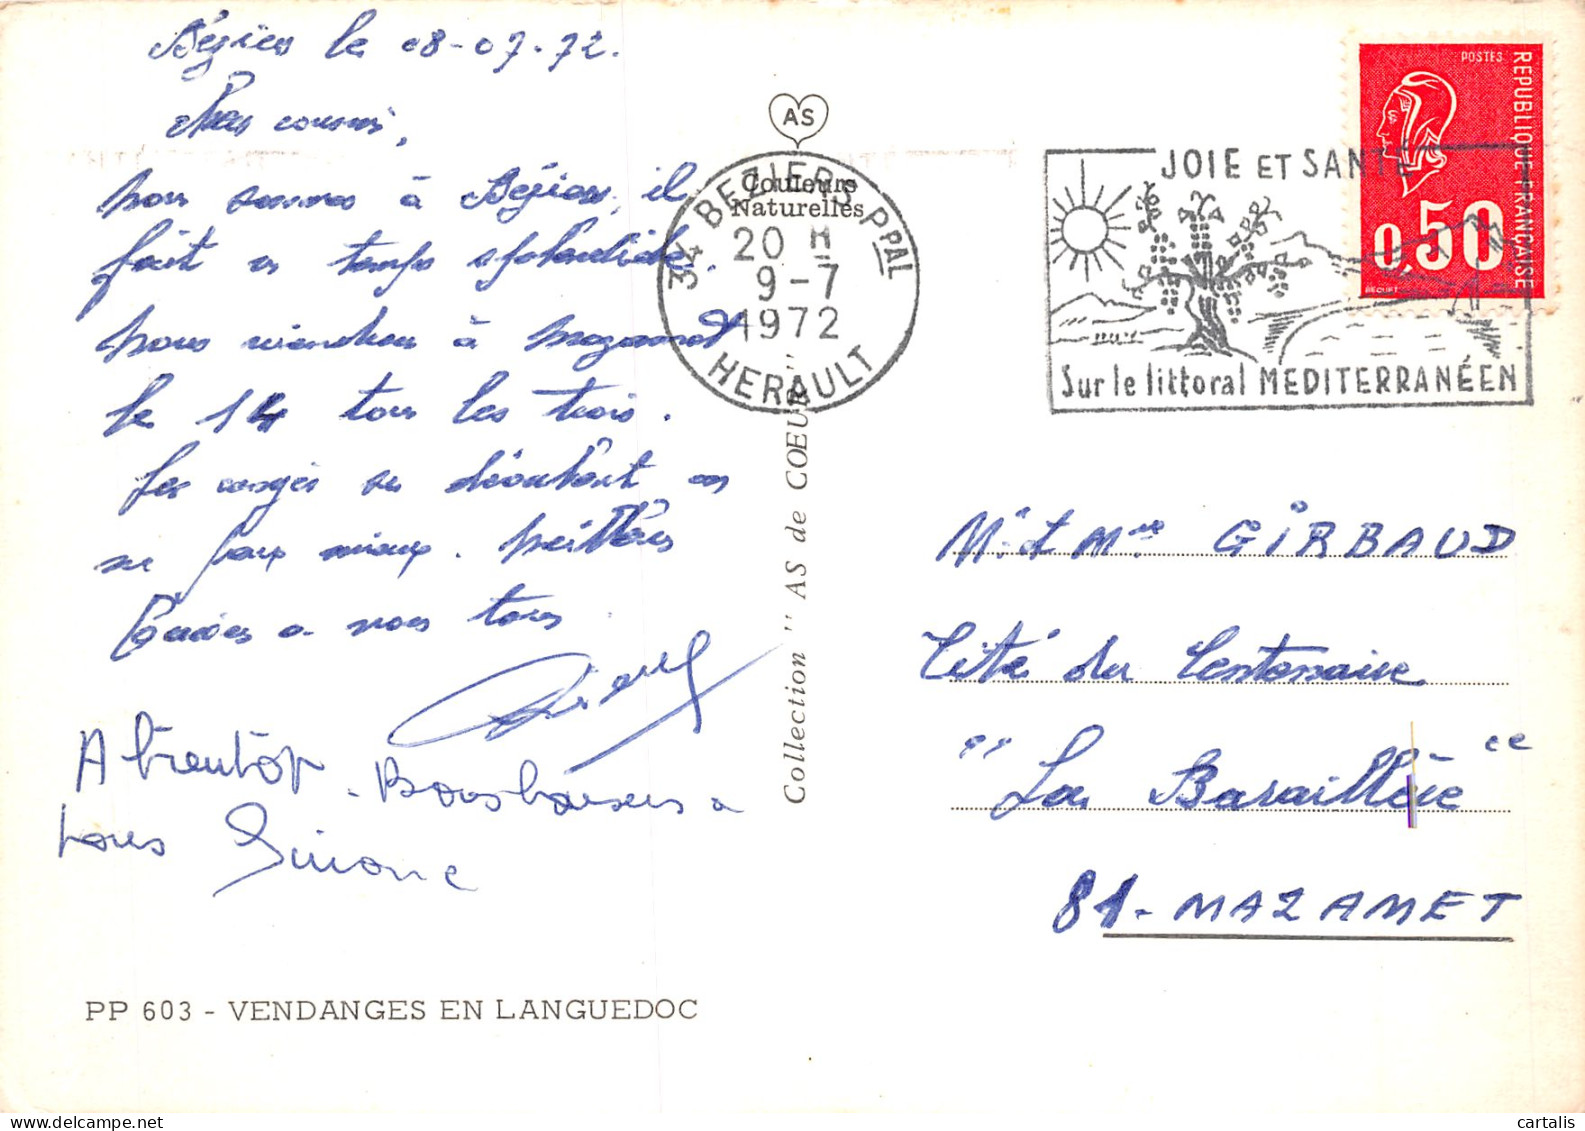 Béziers le 08-07-72.
Chers cousins,
Nous sommes à Béziers, il
fait un temps splendide.
Nous viendrons à Mazamet
le 14 tous les trois.
Les congés se déroulent on
ne peux mieux. Meilleurs
Baisers a vous tous.
A bientôt - Bons baisers a
tous Simone
PP 603 - VENDANGES EN LANGUEDOC
AS
Couleurs
Naturelles
34 BEZIERS PPAL
20 H
9-7
1972
HERAULT
Collection " AS de COEUR "
JOIE ET SANTÉ
Sur le littoral MEDITERRANÉEN
POSTES
REPUBLIQUE FRANÇAISE
0,50
BEQUET
Mr & Mme GIRBAUD
Cité du Centenaire
"La Baraillèie"
81 - MAZAMET
cartalis